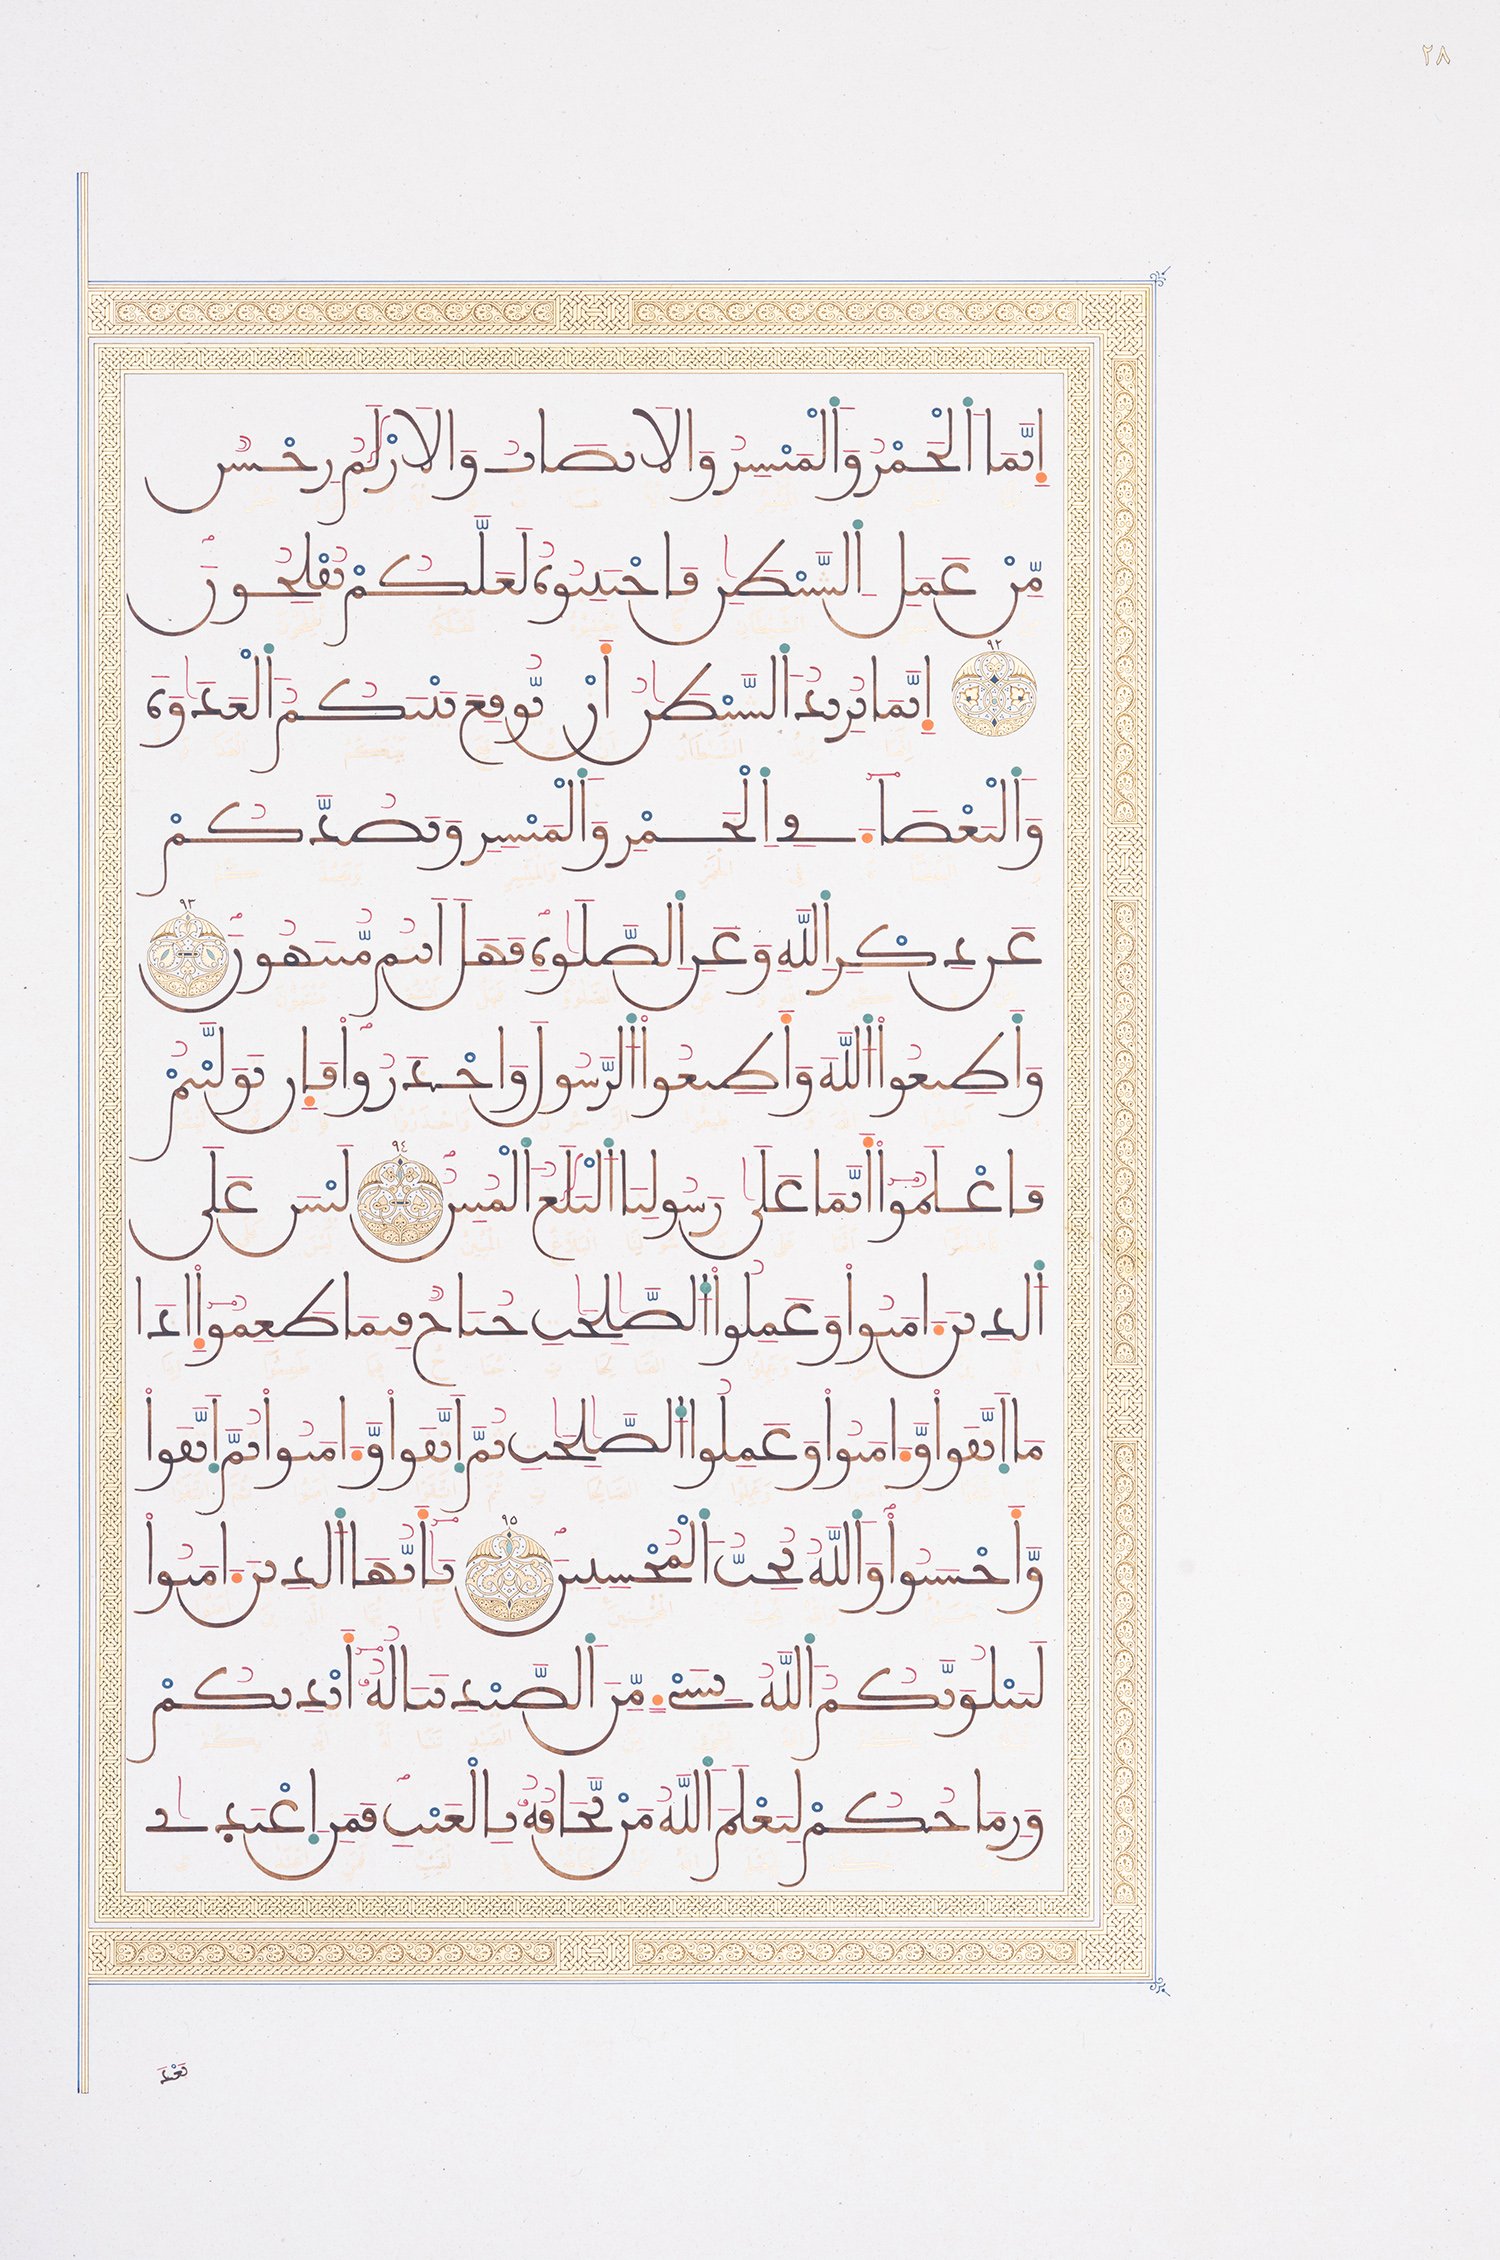 ٢٨
إِنَّمَا اَ۬لْخَمْرُ وَالْمَيْسِرُ وَالَانصَابُ وَالَازْلَٰمُ رِجْسٌ
مِّنْ عَمَلِ اِ۬لشَّيْطَٰنِ فَاجْتَنِبُوهُ لَعَلَّكُمْ تُفْلِحُونَۖ
٩٢ إِنَّمَا يُرِيدُ اُ۬لشَّيْطَٰنُ أَنْ يُّوقِعَ بَيْنَكُمُ اُ۬لْعَدَٰوَةَ
وَالْبَغْضَآءَ فِے اِ۬لْخَمْرِ وَالْمَيْسِرِ وَيَصُدَّكُمْ
عَن ذِكْرِ اِ۬للَّهِ وَعَنِ اِ۬لصَّلَوٰةِۖ فَهَلَ اَنتُم مُّنتَهُونَۖ ٩٣
وَأَطِيعُواْ اُ۬للَّهَ وَأَطِيعُواْ اُ۬لرَّسُولَ وَاحْذَرُواْۖ فَإِن تَوَلَّيْتُمْ
فَاعْلَمُوٓاْ أَنَّمَا عَلَيٰ رَسُولِنَا اَ۬لْبَلَٰغُ اُ۬لْمُبِينُۖ ٩٤ لَيْسَ عَلَى
اَ۬لذِينَ ءَامَنُواْ وَعَمِلُواْ اُ۬لصَّٰلِحَٰتِ جُنَاحٌ فِيمَا طَعِمُوٓاْ إِذَا
مَا اَ۪تَّقَواْ وَّءَامَنُواْ وَعَمِلُواْ اُ۬لصَّٰلِحَٰتِ ثُمَّ اَ۪تَّقَواْ وَّءَامَنُواْ ثُمَّ اَ۪تَّقَواْ
وَّأَحْسَنُواْۖ وَاللَّهُ يُحِبُّ اُ۬لْمُحْسِنِينَۖ ٩٥ يَٰٓأَيُّهَا اَ۬لذِينَ ءَامَنُواْ
لَيَبْلُوَنَّكُمُ اُ۬للَّهُ بِشَےْءٖ مِّنَ اَ۬لصَّيْدِ تَنَالُهُۥٓ أَيْدِيكُمْ
وَرِمَاحُكُمْ لِيَعْلَمَ اَ۬للَّهُ مَنْ يَّخَافُهُۥ بِالْغَيْبِۖ فَمَنِ اِ۪عْتَدَىٰ
بَعْدَ